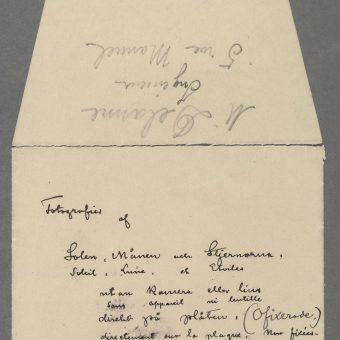 M Delanne
Ingénieur
5 rue Manuel
Fotografier
af
Solen, Månen och Stjernorna,
Soleil, Lune, et Etoiles
utan Kamera eller lins
sans appareil ni lentille
direkt på plåten, (Ofixerade,)
directement sur la plaque. Non fixées